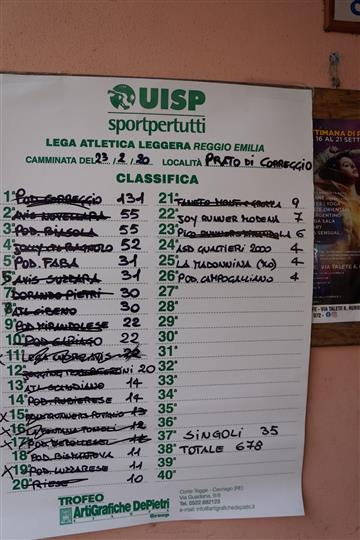 UISP
sportpertutti
LEGA ATLETICA LEGGERA REGGIO EMILIA
CAMMINATA DEL 23/2/20 LOCALITÀ PRATO DI CORREGGIO
CLASSIFICA
1° POD. CORREGGIO 131
2° AVIS NOVELLARA 55
3° POD. BIASOLA 55
4° 52
5° POD. FABA 31
6° AVIS SUZZARA 31
7° DORANDO PIETRI 30
8° ATL CIBENO 30
9° POD MIRANDOLESE 22
10° POD. CABIAGO 22
11° 22
12° 20
13° ATL SCANDIANO 14
14° POD. RUBIERESE 14
15° 13
16° LA FONTANA 12
17° POD. 12
18° POD. BISMANTOVA 11
19° POD. LUZZARESE 11
20° RIESE 10
21° 9
22° JOY RUNNER MODENA 7
23° 6
24° ASD QUARTIERI 2000 4
25° LA MADONNINA (MO) 4
26° POD. CAMPOGALLIANO 4
27°
28°
29°
30°
31°
32°
33°
34°
35°
36°
37° SINGOLI 35
38° TOTALE 678
39°
40°
TROFEO
ArtiGrafiche DePietri
Group
Corte Tegge - Cavriago (RE)
Via Guadiana, 6/8
Tel. 0522 882123
e-mail: info@artigrafichedepietri.it
TIMANA DI
16 AL 21 SETT
VIA TALETE